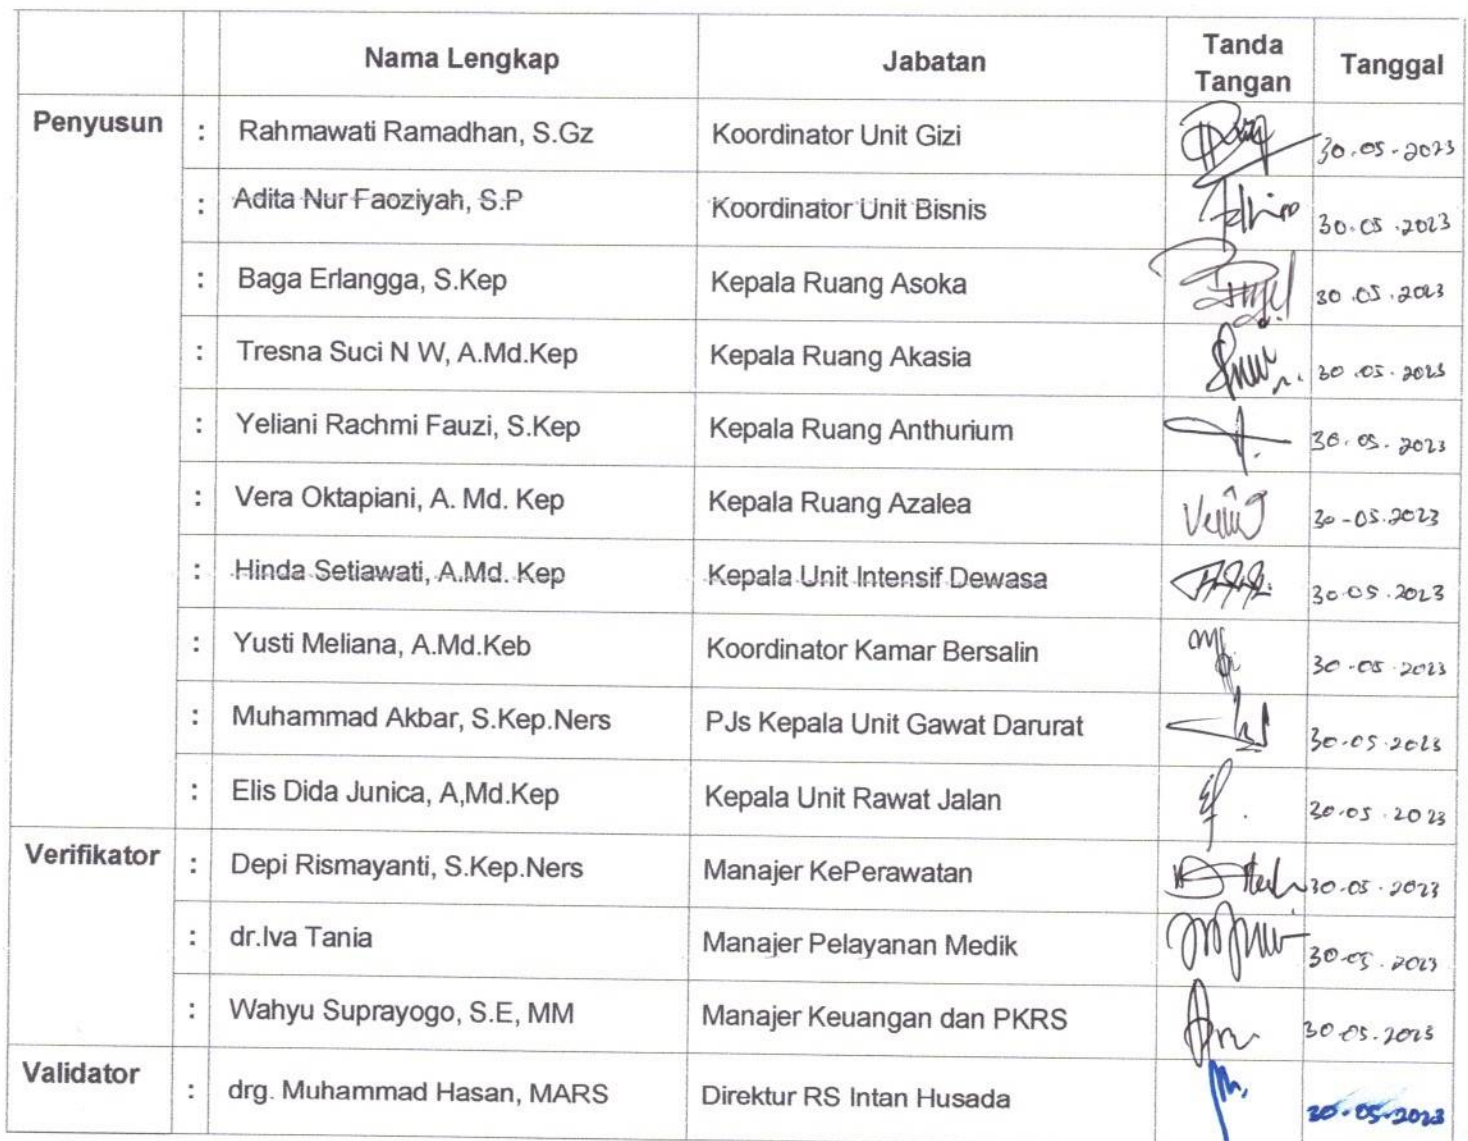 Nama Lengkap Jabatan Tanda Tangan Tanggal
Penyusun : Rahmawati Ramadhan, S.Gz Koordinator Unit Gizi 30.05-2023
: Adita Nur Faoziyah, S.P Koordinator Unit Bisnis 30.05.2023
: Baga Erlangga, S.Kep Kepala Ruang Asoka 30.05.2023
: Tresna Suci N W, A.Md.Kep Kepala Ruang Akasia 30.05.2023
: Yeliani Rachmi Fauzi, S.Kep Kepala Ruang Anthurium 30.05.2023
: Vera Oktapiani, A. Md. Kep Kepala Ruang Azalea 30-05.2023
: Hinda Setiawati, A.Md. Kep Kepala Unit Intensif Dewasa 30.05.2023
: Yusti Meliana, A.Md.Keb Koordinator Kamar Bersalin 30-05.2023
: Muhammad Akbar, S.Kep.Ners PJs Kepala Unit Gawat Darurat 30.05.2023
: Elis Dida Junica, A,Md.Kep Kepala Unit Rawat Jalan 30.05.2023
Verifikator : Depi Rismayanti, S.Kep.Ners Manajer KePerawatan 30.05.2023
: dr.Iva Tania Manajer Pelayanan Medik 30.05.2023
: Wahyu Suprayogo, S.E, MM Manajer Keuangan dan PKRS 30.05.2023
Validator : drg. Muhammad Hasan, MARS Direktur RS Intan Husada 30.05.2023